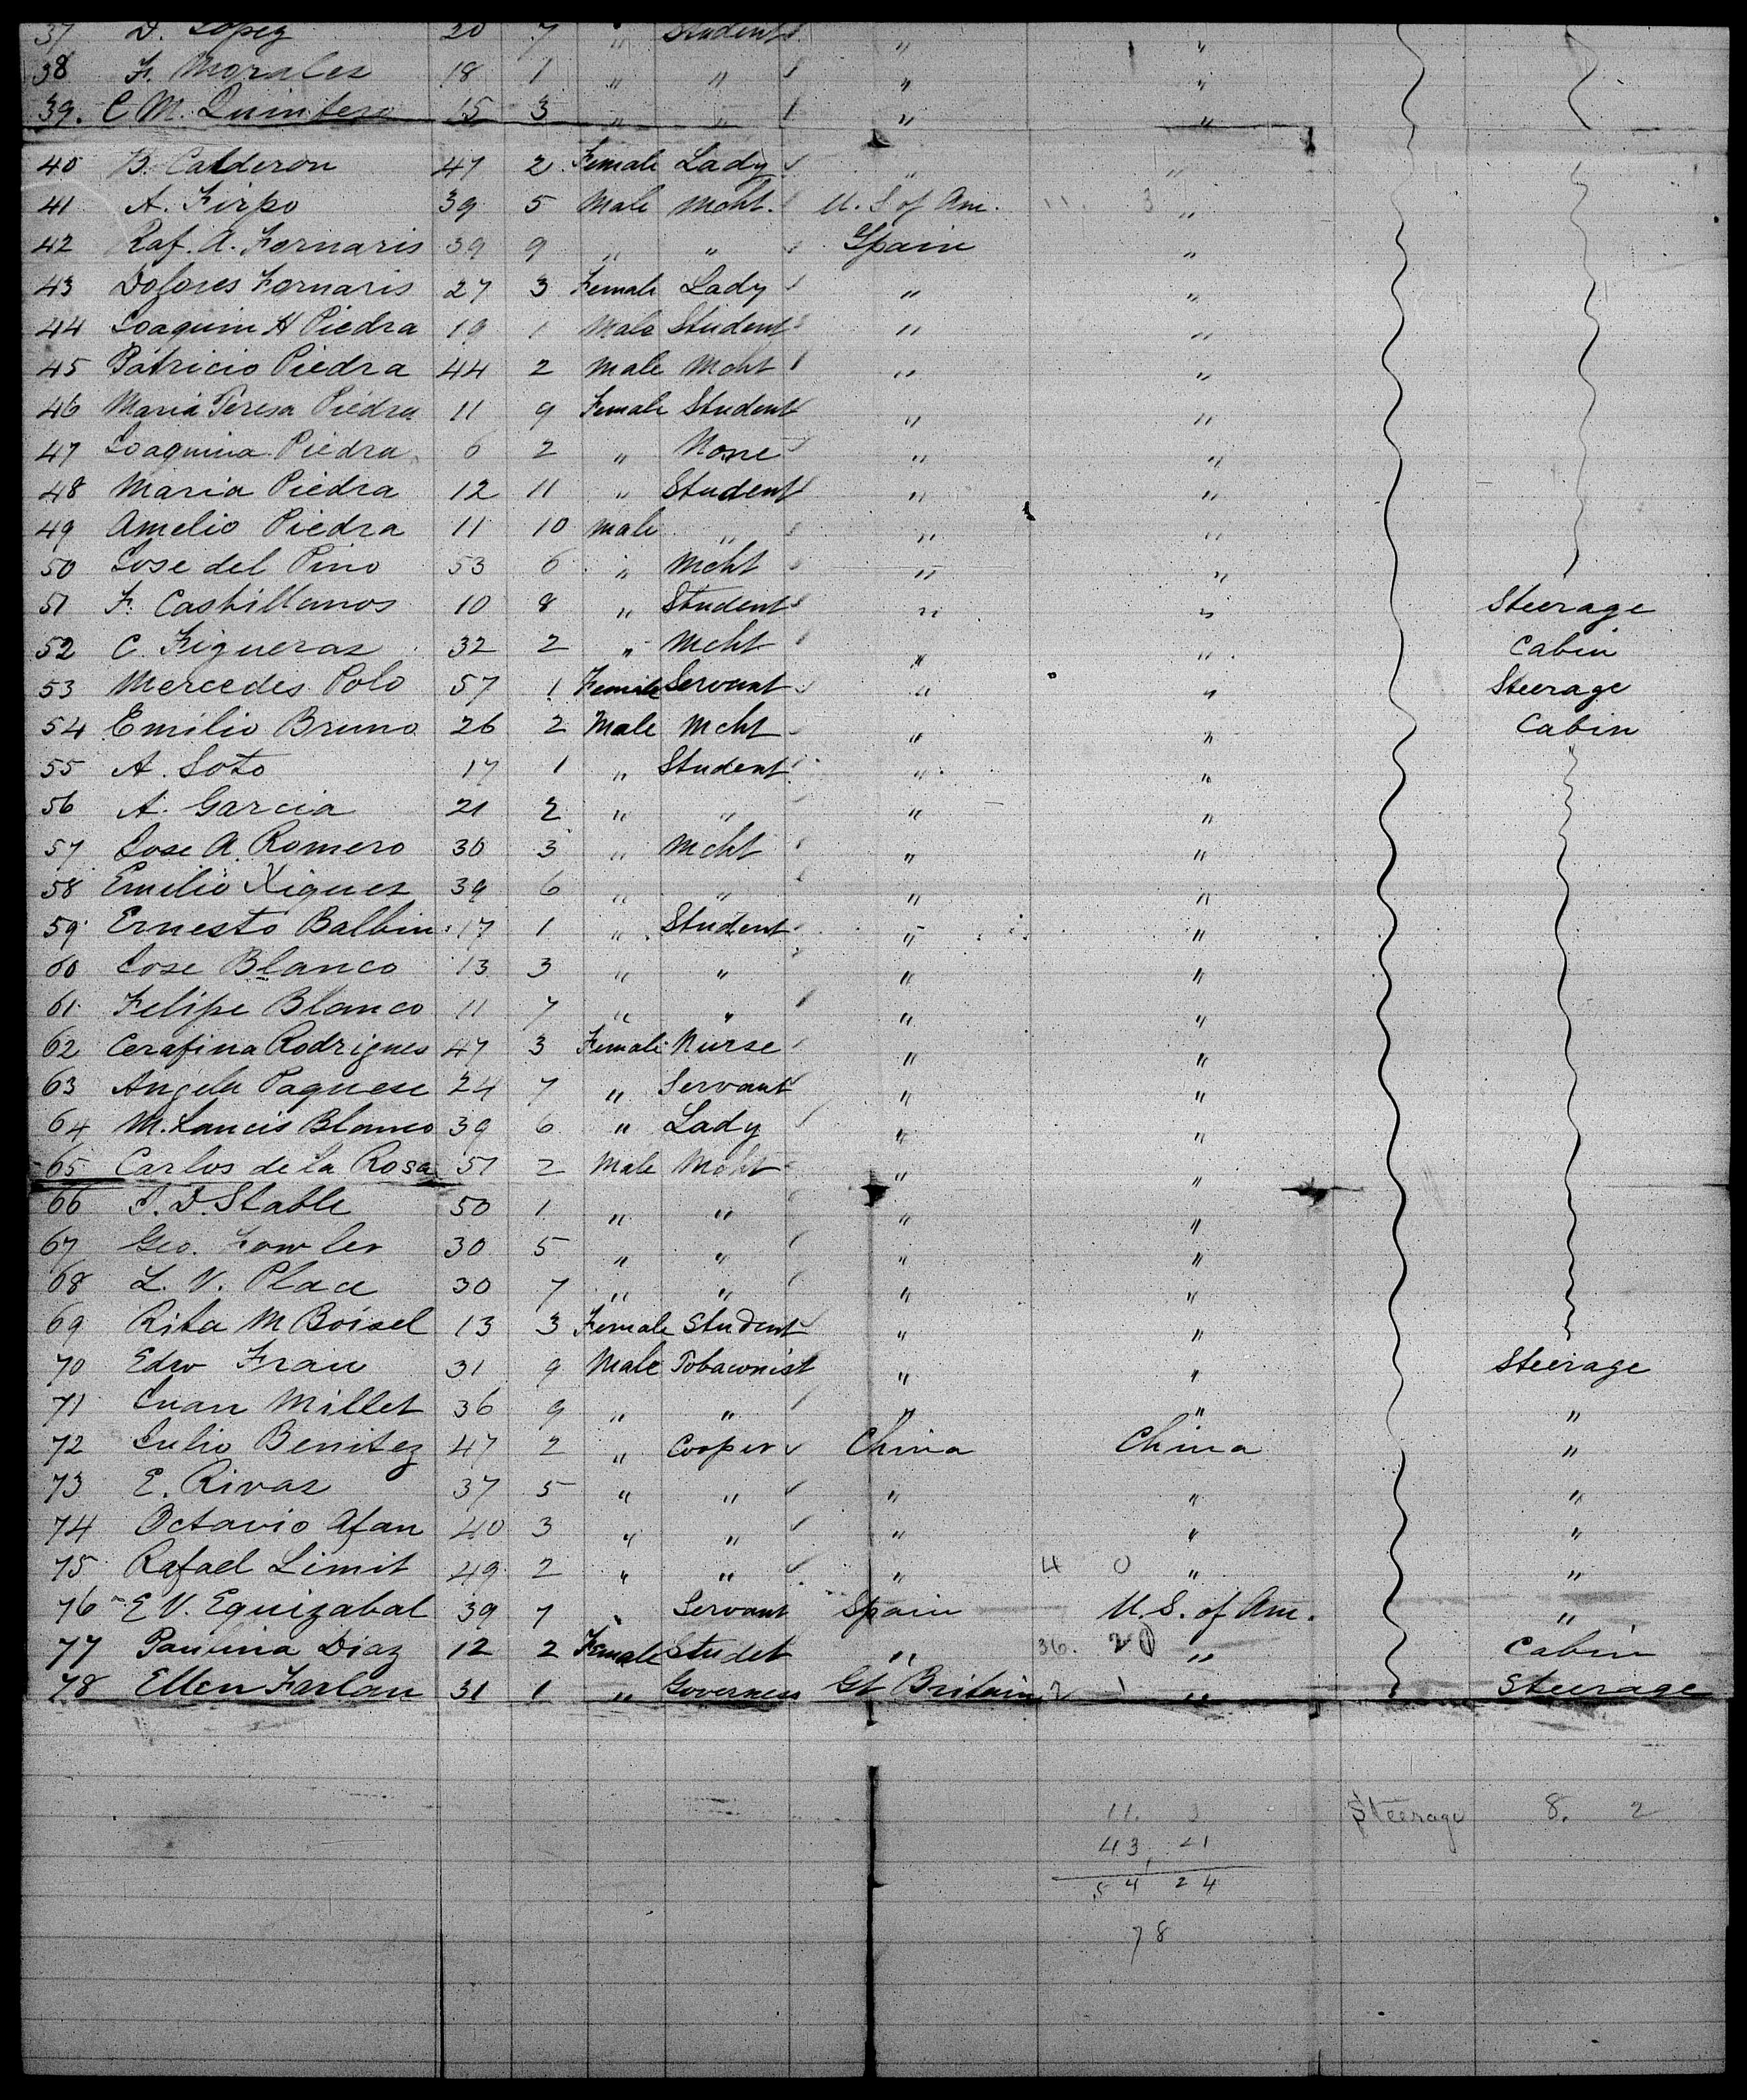 37 D. Lopez 20 7 " Student " "
38 F. Morales 18 1 " " " "
39. C M. Quintero 15 3 " " " "
40 B. Calderon 47 2 Female Lady " "
41 A. Firpo 39 5 Male Mcht. U. S of Am. 11. 3 "
42 Raf. A. Fornaris 39 9 " " Spain "
43 Dolores Fornaris 27 3 Female Lady " "
44 Joaquin H Piedra 19 1 Male Student " "
45 Patricio Piedra 44 2 Male Mcht " "
46 Maria Teresa Piedra 11 9 Female Student " "
47 Joaquina Piedra 6 2 " None " "
48 Maria Piedra 12 11 " Student " "
49 Amelio Piedra 11 10 Male " " "
50 Jose del Pino 53 6 " Mcht " "
51 F. Castillanos 10 8 " Student " " Steerage
52 C. Figueras 32 2 " Mcht " " Cabin
53 Mercedes Polo 57 1 Female Servant " " Steerage
54 Emilio Bruno 26 2 Male Mcht " " Cabin
55 A. Soto 17 1 " Student " "
56 A. Garcia 21 2 " " " "
57 Jose A. Romero 30 3 " Mcht " "
58 Emilio Xiques 39 6 " " " "
59 Ernesto Balbin 17 1 " Student " "
60 Jose Blanco 13 3 " " " "
61 Felipe Blanco 11 7 " " " "
62 Cerafina Rodrigues 47 3 Female Nurse " "
63 Angela Paquese 24 7 " Servant " "
64 M. Lancis Blanco 39 6 " Lady " "
65 Carlos de la Rosa 51 2 Male Mcht " "
66 J. D. Stable 50 1 " " " "
67 Geo. Fowler 30 5 " " " "
68 L. V. Place 30 7 " " " "
69 Rita M Boisel 13 3 Female Student " "
70 Edw Frau 31 9 Male Tobaconist " " Steerage
71 Juan Millet 36 9 " " " " "
72 Julio Benitez 47 2 " Cooper China China "
73 E. Rivas 37 5 " " " " "
74 Octavio Afan 40 3 " " " " "
75 Rafael Limit 49 2 " " " 4 0 " "
76 E V. Equizabal 39 7 " Servant Spain U.S. of Am. "
77 Paulina Diaz 12 2 Female Studet " 36. 20 " Cabin
78 Ellen Farlan 31 1 " Governess Gt Britain 2 1 " Steerage
11. 3 Steerage 8. 2
43, 21
54 24
78